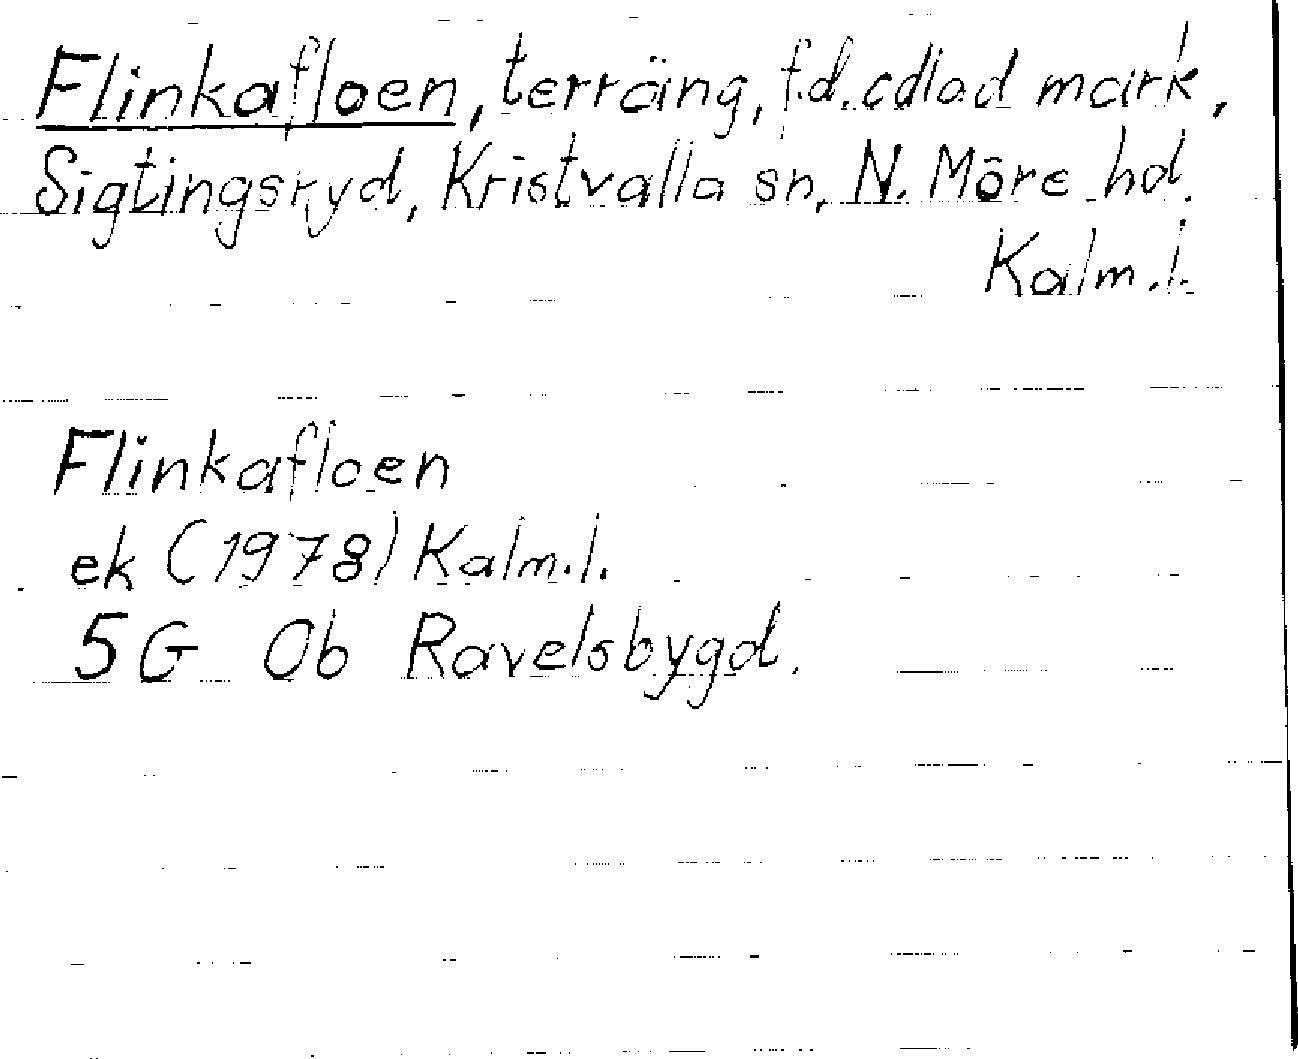 Flinkafloen, terräng, f.d. odlad mark,
Sigtingsryd, Kristvalla sn, N. Möre hd.
Kalm.l.
Flinkafloen
ek (1978) Kalm.l.
5G 0b Ravelsbygd.